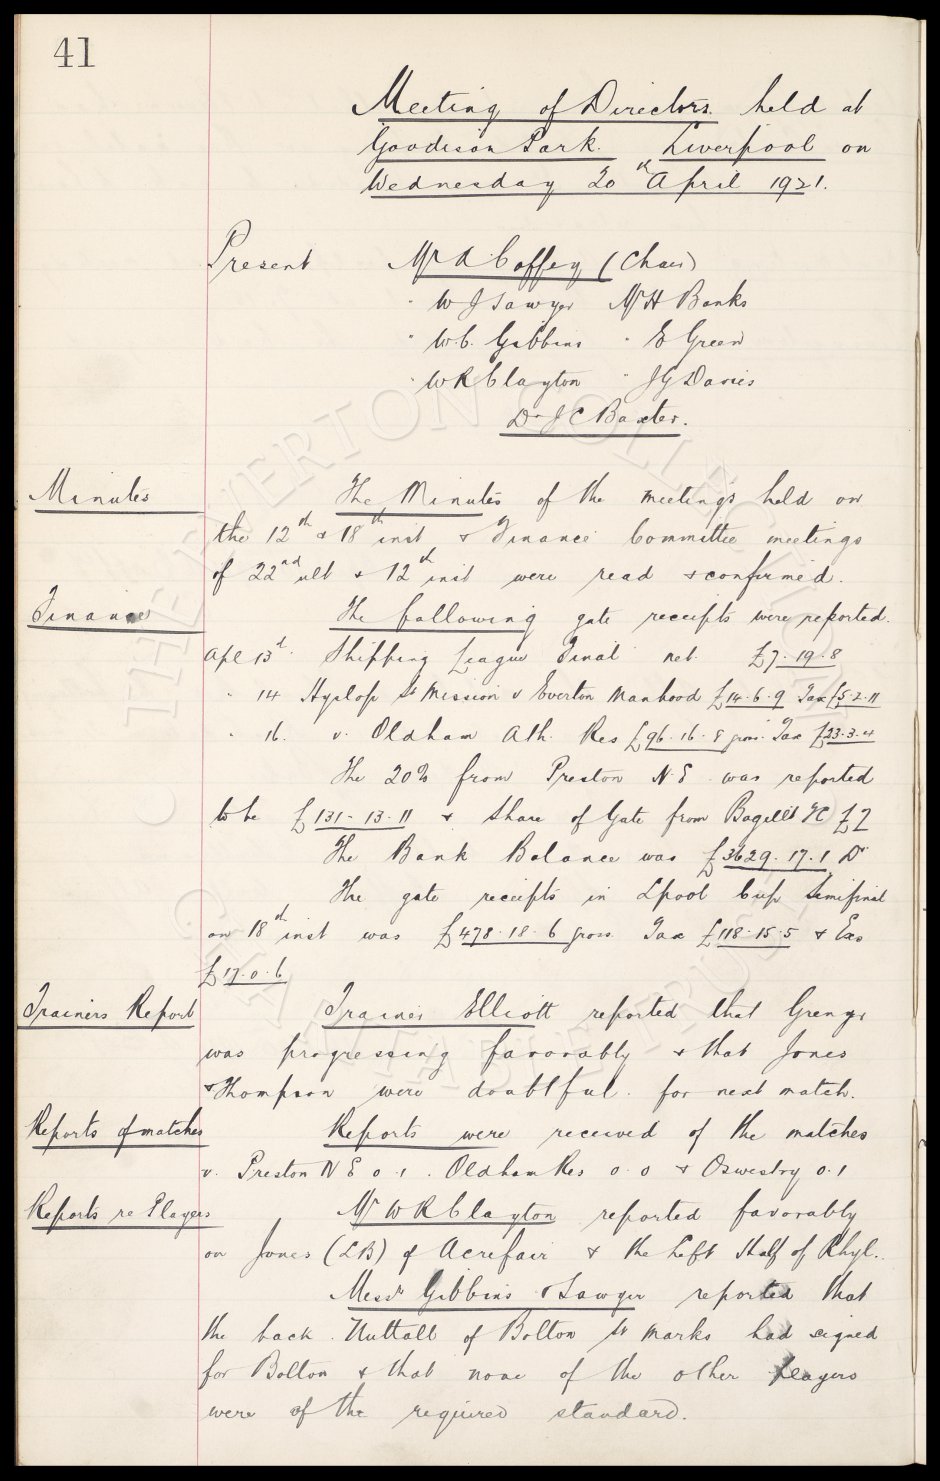 41
Meeting of Directors held at
Goodison Park. Liverpool on
Wednesday 20th April 1921.
Present Mr A Coffey (Chair)
" W J Sawyer Mr H Banks
" W.C. Gibbins " E Green
" W R Clayton " J G Davies
Dr J C Baxter.
Minutes The Minutes of the meetings held on
the 12th & 18th inst & Finance Committee meetings
of 22nd ult & 12th inst were read & confirmed.
Finance The following gate receipts were reported.
Apl 13th Shipping League Final net. £7.19.8
" 14 Hyslop St Mission v Everton Manhood £14.6.9 Tax £5.2.11
" 16. v. Oldham Ath. Res £96.16.8 gross. Tax £23.3.4
The 20% from Preston N.E. was reported
to be £131-13.11 & share of Gate from Bagillt FC £7
The Bank Balance was £3629.17.1 Dr
The gate receipts in Lpool Cup Semifinal
on 18th inst was £478.18.6 gross Tax £118.15.5 & Exs
£17.0.6
Trainers Report Trainer Elliott reported that Grenyer
was progressing favorably & that Jones
& Thompson were doubtful for next match.
Reports of matches Reports were received of the matches
v. Preston N E 0.1. Oldham Res 0.0 & Oswestry 0.1
Reports re Players Mr W R Clayton reported favorably
on Jones (LB) of Acrefair & the Left Half of Rhyl..
Messrs Gibbins & Sawyer reported that
the back. Nuttall of Bolton St Marks had signed
for Bolton & that none of the other players
were of the required standard.
THE EVERTON COLLECTION CHARITABLE TRUST